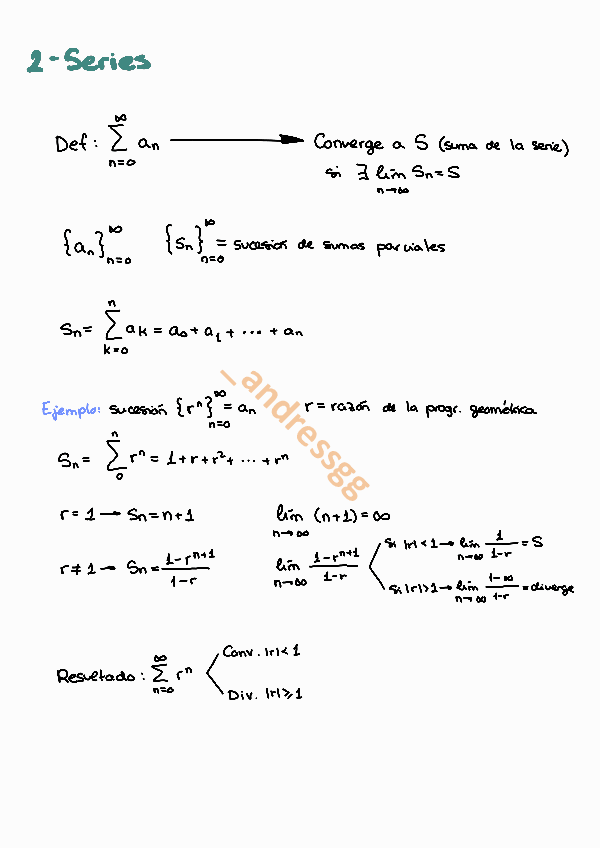 2-Series
Def: ∑_{n=0}^{∞} a_n ⟶ Converge a S (suma de la serie)
si ∃ lím_{n→∞} S_n = S
{a_n}_{n=0}^{∞} {S_n}_{n=0}^{∞} = sucesión de sumas parciales
S_n = ∑_{k=0}^{n} a_k = a_0 + a_1 + ... + a_n
_andressgg
Ejemplo: sucesión {r^n}_{n=0}^{∞} = a_n r = razón de la progr. geométrica
S_n = ∑_{0}^{n} r^n = 1 + r + r^2 + ... + r^n
r = 1 → S_n = n+1 lím_{n→∞} (n+1) = ∞
r ≠ 1 → S_n = (1-r^{n+1})/(1-r) lím_{n→∞} (1-r^{n+1})/(1-r)
si |r| < 1 → lím_{n→∞} 1/(1-r) = S
si |r| > 1 → lím_{n→∞} (1-∞)/(1-r) = diverge
Resultado: ∑_{n=0}^{∞} r^n
Conv. |r| < 1
Div. |r| ≥ 1